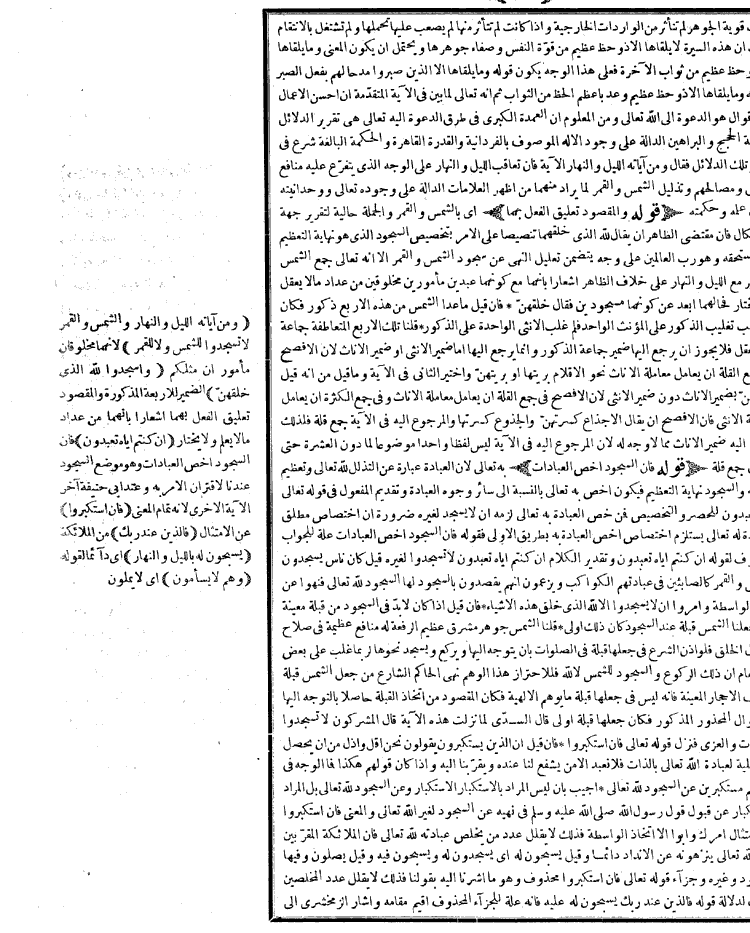 قوية الجوهر لم تتأثر من الواردات الخارجية واذا كانت لم تتأثر منها لم يصعب عليها تحملها ولم تشتغل بالانتقام
ان هذه السيرة لا يلقاها الا ذو حظ عظيم من قوة النفس وصفاء جوهرها ويحتمل ان يكون المعنى وما يلقاها
وحظ عظيم من ثواب الآخرة فعلى هذا الوجه يكون قوله وما يلقاها الا الذين صبروا مدحا لهم بفعل الصبر
وما يلقاها الا ذو حظ عظيم وعد باعظم الحظ من الثواب ثم انه تعالى لما بين فى الآية المتقدمة ان احسن الاعمال
قوال هو الدعوة الى الله تعالى ومن المعلوم ان العمدة الكبرى فى طرق الدعوة اليه تعالى هى تقرير الدلائل
ة الحجج والبراهين الدالة على وجود الاله الموصوف بالفردانية والقدرة القاهرة والحكمة البالغة شرع فى
تلك الدلائل فقال ومن آياته الليل والنهار الآية فان تعاقب الليل والنهار على الوجه الذى يتفرع عليه منافع
ومصالحهم وتذليل الشمس والقمر لما يراد منهما من اظهر العلامات الدالة على وجوده تعالى ووحدانيته
علمه وحكمته ﴿قوله والمقصود تعليق الفعل بهما﴾ اى بالشمس والقمر والجملة حالية لتقرير جهة
كال فان مقتضى الظاهر ان يقال لله الذى خلقهما تنصيصا على الامر بتخصيص السجود الذى هو نهاية التعظيم
ستحقه وهو رب العالمين على وجه يتضمن تعليل النهى عن سجود الشمس والقمر الا انه تعالى جمع الشمس
ر مع الليل والنهار على خلاف الظاهر اشعارا بانهما مع كونهما عبدين مأمورين مخلوقين من عداد مالا يعقل
تار فحالهما ابعد عن كونهما مسجودين فقال خلقهن * فان قيل ماعدا الشمس من هذه الاربع ذكور فكان
ب تغليب الذكور على المؤنث الواحدة فلم غلب الانثى الواحدة على الذكور * قلنا تلك الاربع المتعاطفة جماعة
عقل فلا يجوز ان يرجع اليها ضمير جماعة الذكور وانما يرجع اليها اما ضمير الانثى او ضمير الاناث لان الافصح
ع القلة ان يعامل معاملة الاناث نحو الاقلام بريتها او بريتهن واختير الثانى فى الآية وما قيل من انه قيل
ن بضمير الاناث دون ضمير الانثى لان الافصح فى جمع القلة ان يعامل معاملة الاناث وفى جمع الكثرة ان يعامل
ة الانثى فان الافصح ان يقال الاجذاع كسرتهن والجذوع كسرتها والمرجوع اليه فى الآية جمع قلة فلذلك
اليه ضمير الاناث مما لا وجه له لان المرجوع اليه فى الآية ليس لفظا واحدا موضوعا لما دون العشرة حتى
جمع قلة ﴿قوله فان السجود اخص العبادات﴾ به تعالى لان العبادة عبارة عن التذلل لله تعالى وتعظيم
والسجود نهاية التعظيم فيكون اخص به تعالى بالنسبة الى سائر وجوه العبادة وتقديم المفعول فى قوله تعالى
عبدون للحصر والتخصيص فمن خص العبادة به تعالى لزمه ان لا يسجد لغيره ضرورة ان اختصاص مطلق
ة له تعالى يستلزم اختصاص اخص العبادة به بطريق الاولى فقوله فان السجود اخص العبادات علة للجواب
ف لقوله ان كنتم اياه تعبدون وتقدير الكلام ان كنتم اياه تعبدون لا تسجدوا لغيره قيل كان ناس يسجدون
والقمر كالصابئين فى عبادتهم الكواكب ويزعمون انهم يقصدون بالسجود لها السجود لله تعالى فنهوا عن
لواسطة وامروا ان لا يسجدوا الا لله الذى خلق هذه الاشياء * فان قيل اذا كان لابد فى السجود من قبلة معينة
جعلنا الشمس قبلة عند السجود كان ذلك اولى * قلنا الشمس جوهر مشرق عظيم الرفعة له منافع عظيمة فى صلاح
الخلق فلو اذن الشرع فى جعلها قبلة فى الصلوات بان يتوجه اليها ويركع ويسجد نحوها لربما غلب على بعض
ام ان ذلك الركوع والسجود للشمس لا لله فللاحتراز هذا الوهم نهى الحاكم الشارع من جعل الشمس قبلة
ف الاحجار المعينة فانه ليس فى جعلها قبلة ما يوهم الالهية فكان المقصود من اتخاذ القبلة حاصلا بالتوجه اليها
وال المحذور المذكور فكان جعلها قبلة اولى قال السدى لما نزلت هذه الآية قال المشركون لا تسجدوا
ت والعزى فنزل قوله تعالى فان استكبروا * فان قيل ان الذين يستكبرون يقولون نحن اقل واذل من ان يحصل
لية لعبادة الله تعالى بالذات فلا نعبد الا من يشفع لنا عنده ويقربنا اليه واذا كان قولهم هكذا فما الوجه فى
م مستكبرين عن السجود لله تعالى * اجيب بان ليس المراد بالاستكبار الاستكبار وعن السجود لله تعالى بل المراد
كبار عن قبول قول رسول الله صلى الله عليه وسلم فى نهيه عن السجود لغير الله تعالى والمعنى فان استكبروا
تثال امرك وابوا الا اتخاذ الواسطة فذلك لا يقلل عدد من يخلص عبادته لله تعالى فان الملائكة المقربين
ه تعالى ينزهونه عن الانداد دائما وقيل يسبحون له اى يسجدون له ويسبحون فيه وقيل يصلون وفيها
ود وغيره وجزآء قوله تعالى فان استكبروا محذوف وهو ما اشرنا اليه بقولنا فذلك لا يقلل عدد المخلصين
لدلالة قوله فالذين عند ربك يسبحون له عليه فانه علة للجزآء المحذوف اقيم مقامه واشار الزمخشرى الى
(ومن آياته الليل والنهار والشمس والقمر
لا تسجدوا للشمس ولا للقمر) لانهما مخلوقان
مأموران مثلكم (واسجدوا لله الذى
خلقهن) الضمير للاربعة المذكورة والمقصود
تعليق الفعل بهما اشعارا بانهما من عداد
مالا يعلم ولا يختار (ان كنتم اياه تعبدون) فان
السجود اخص العبادات وهو موضع السجود
عندنا لاقتران الامر به وعند ابى حنيفة آخر
الآية الاخرى لانه تمام المعنى (فان استكبروا)
عن الامتثال (فالذين عند ربك) من الملائكة
(يسبحون له بالليل والنهار) اى دآئما لقوله
(وهم لا يسأمون) اى لا يملون